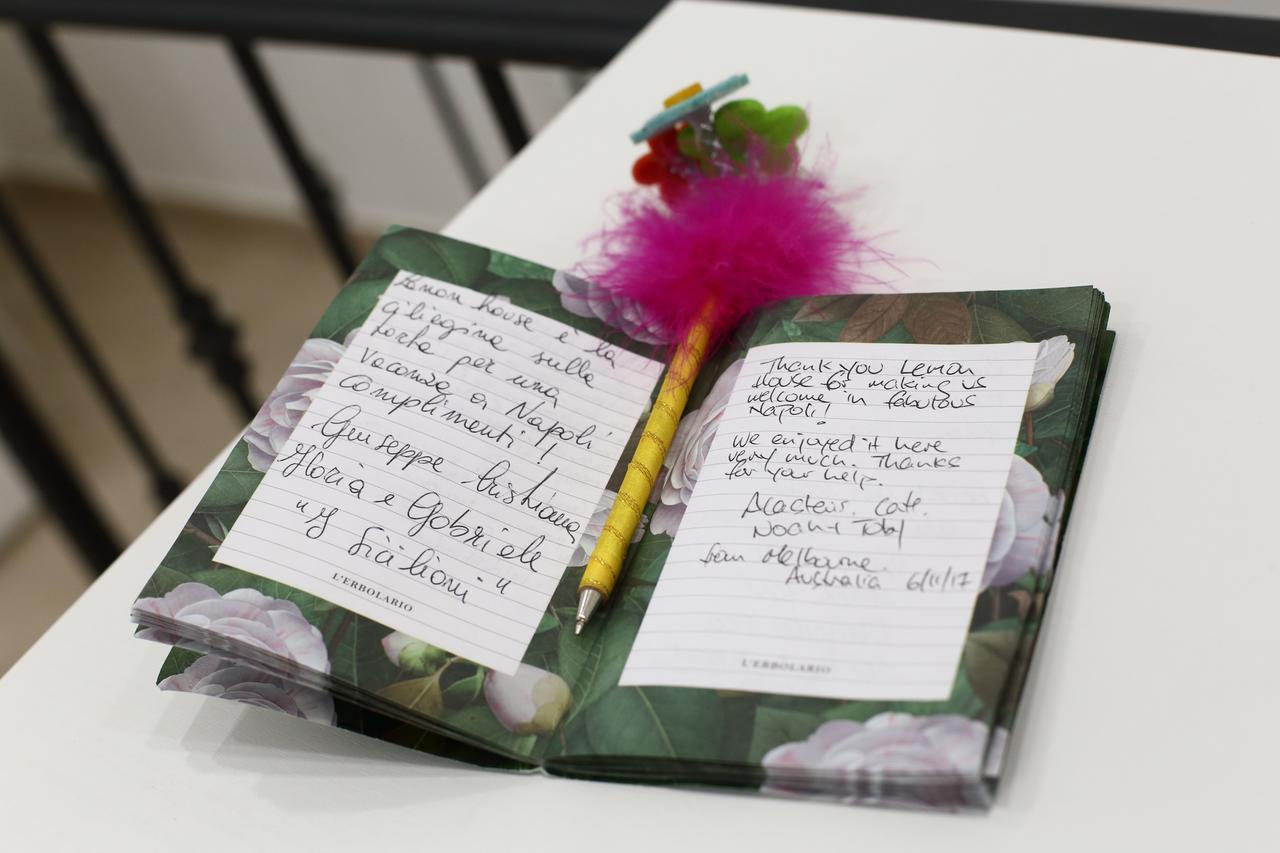 Lemon house è la
ciliegina sulla
torta per una
vacanza a Napoli
complimenti!
Giuseppe Cristiana
Gloria e Gabriele
"I Siciliani"
L'ERBOLARIO
Thank you Lemon
House for making us
welcome in fabulous
Napoli!
We enjoyed it here
very much. Thanks
for your help.
Alasteir. Cate.
Noah +
from Melbourne.
Australia 6/11/17
L'ERBOLARIO